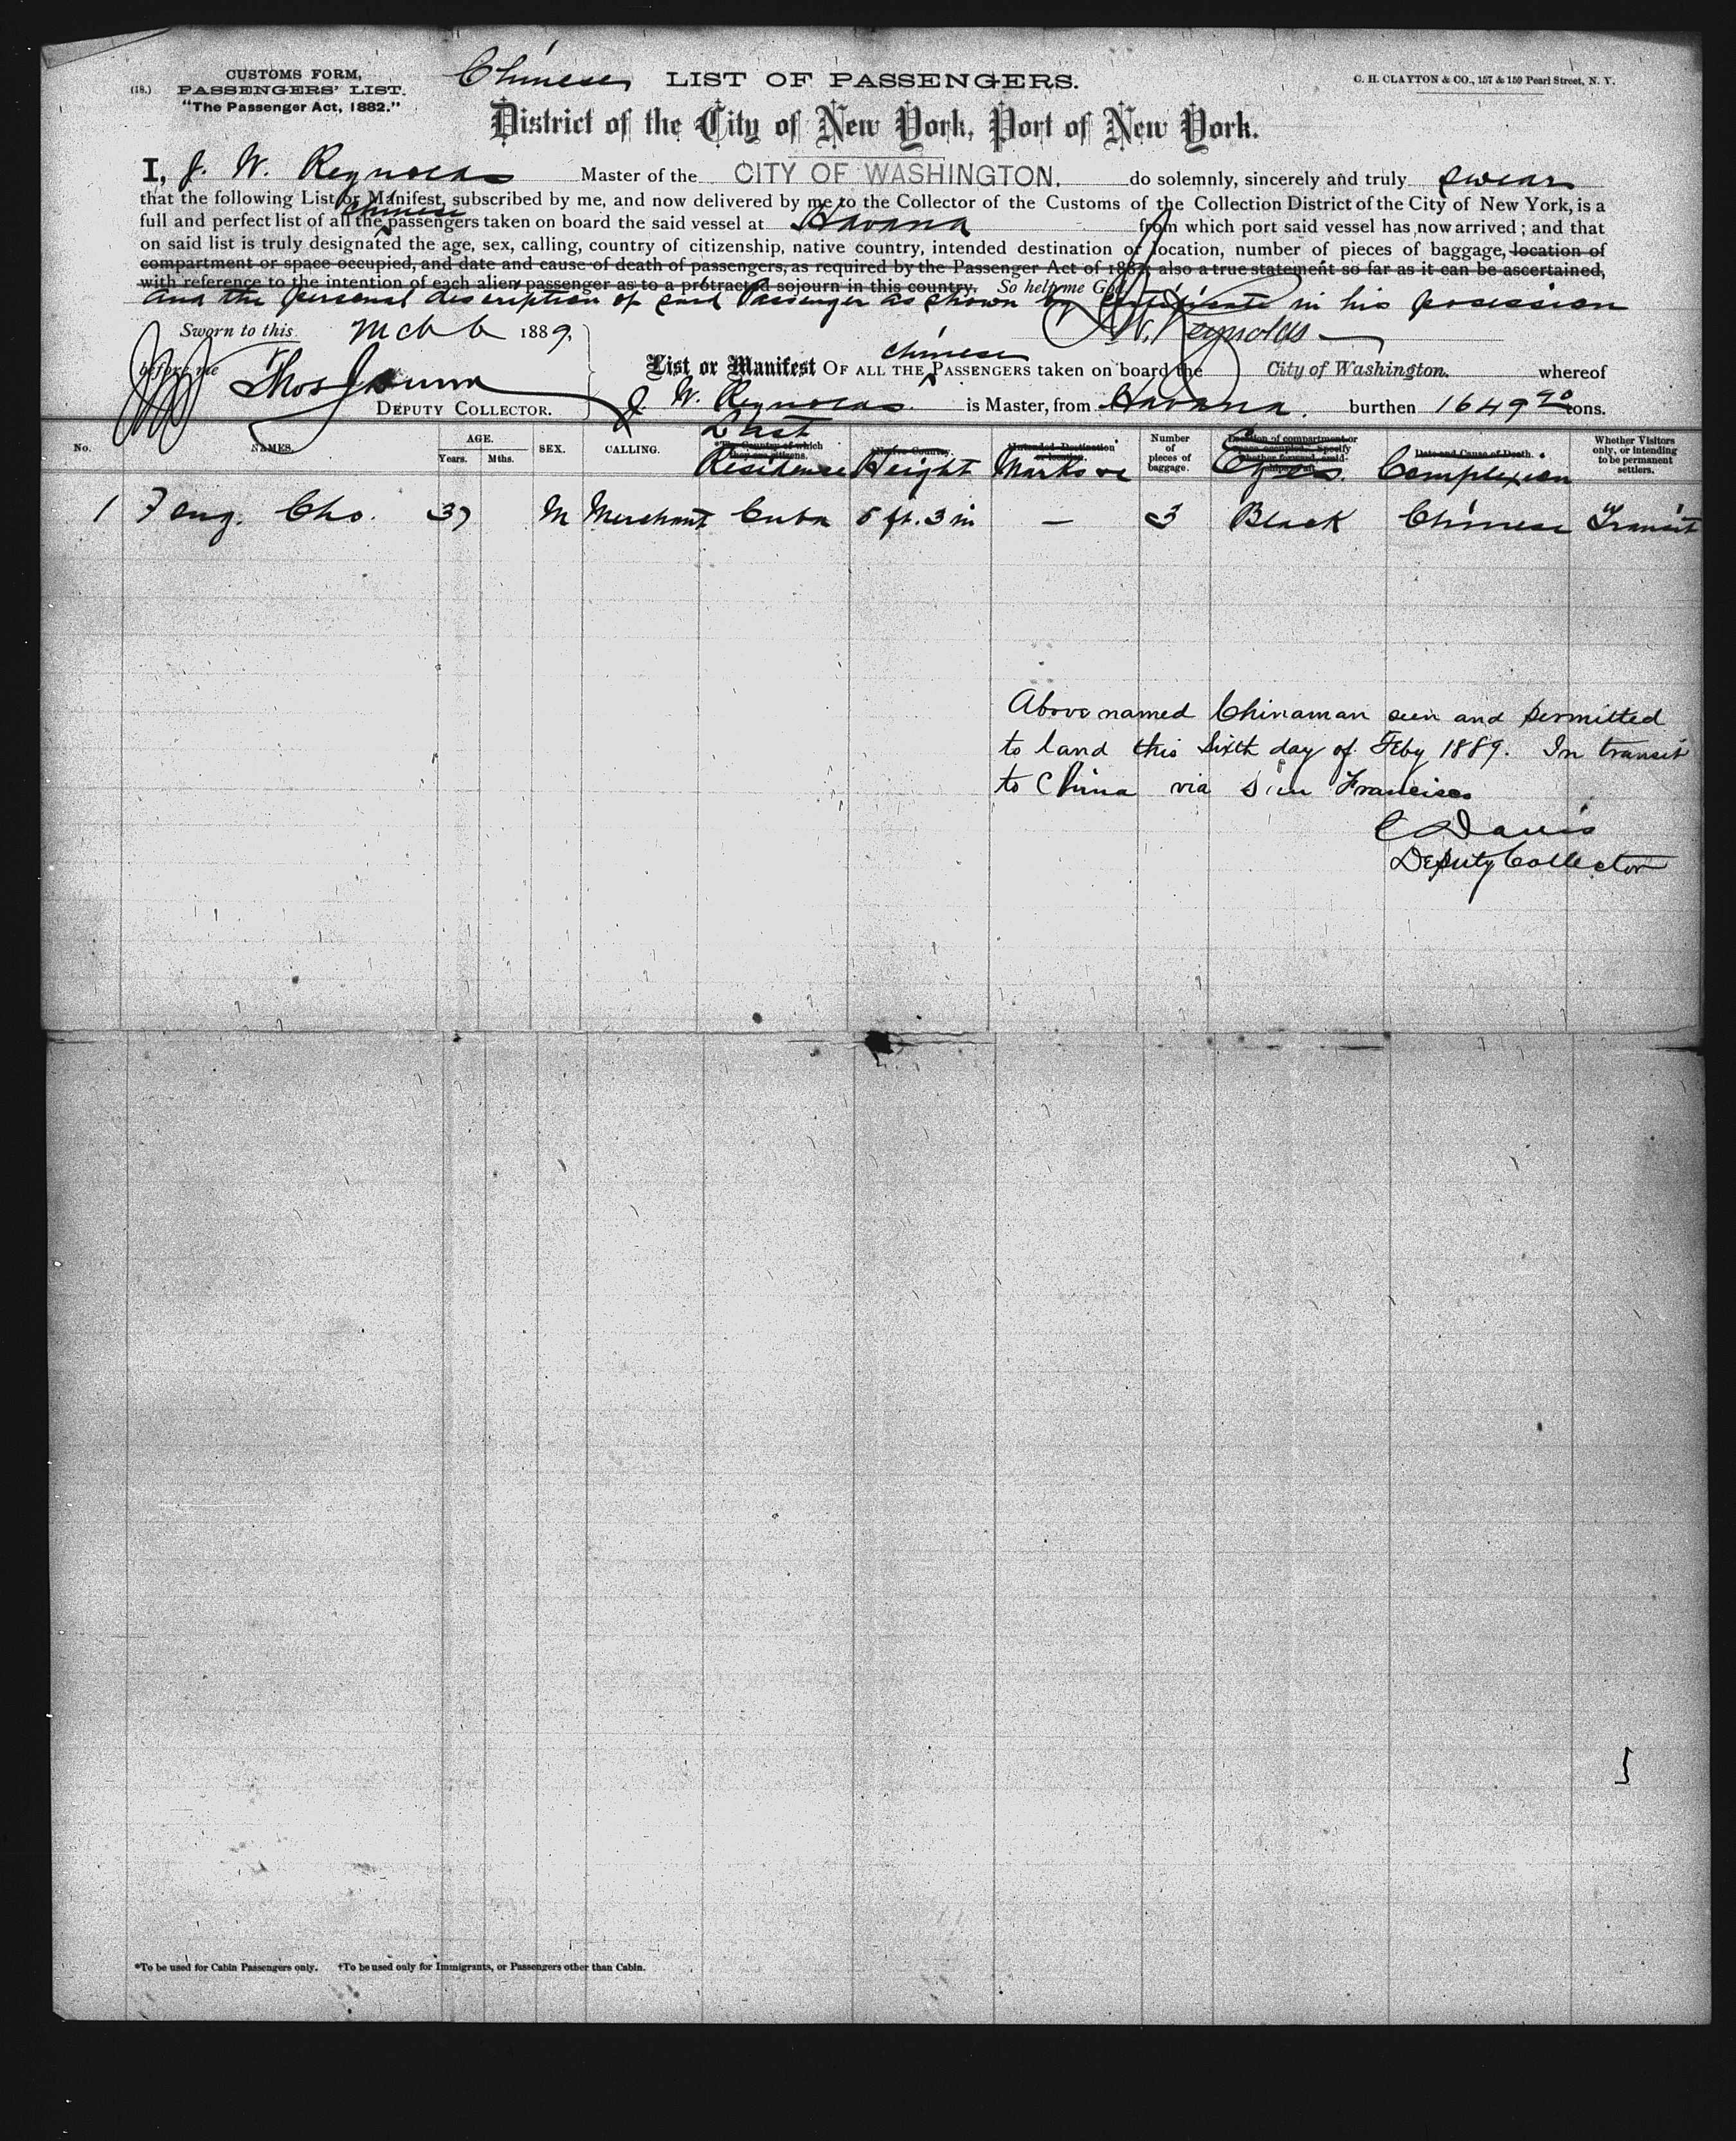 CUSTOMS FORM,
(18.) PASSENGERS' LIST.
"The Passenger Act, 1882."
Chinese LIST OF PASSENGERS.
C. H. CLAYTON & CO., 157 & 159 Pearl Street, N. Y.
District of the City of New York, Port of New York.
I, J. W. Reynolds Master of the CITY OF WASHINGTON. do solemnly, sincerely and truly swear
that the following List or Manifest, subscribed by me, and now delivered by me to the Collector of the Customs of the Collection District of the City of New York, is a
full and perfect list of all the Chinese passengers taken on board the said vessel at Havana from which port said vessel has now arrived; and that
on said list is truly designated the age, sex, calling, country of citizenship, native country, intended destination or location, number of pieces of baggage, location of
compartment or space occupied, and date and cause of death of passengers, as required by the Passenger Act of 1882; also a true statement so far as it can be ascertained,
with reference to the intention of each alien passenger as to a protracted sojourn in this country. So help me God
and the personal description of said Passenger as shown by Certificate in his posession
Sworn to this Mch 6 1889.
J. W. Reynolds
before me Thos
DEPUTY COLLECTOR.
List or Manifest OF ALL THE Chinese PASSENGERS taken on board the City of Washington. whereof
J. W. Reynolds is Master, from Havana. burthen 1649 90 tons.
No. NAMES. AGE. Years. Mths. SEX. CALLING. Last *The Country of which they are citizens. Residence Native Country. Height Intended Destination or location. Marks Number of pieces of baggage. Eyes. Date and Cause of Death. Complexion Whether Visitors only, or intending to be permanent settlers.
1 Fang. Cho. 37 M Merchant Cuba 5 ft. 3 in — 3 Black Chinese Transit
Above named Chinaman seen and permitted
to land this Sixth day of Feby 1889. In transit
to China via San Francisco
C Davis
Deputy Collector
*To be used for Cabin Passengers only. †To be used only for Immigrants, or Passengers other than Cabin.